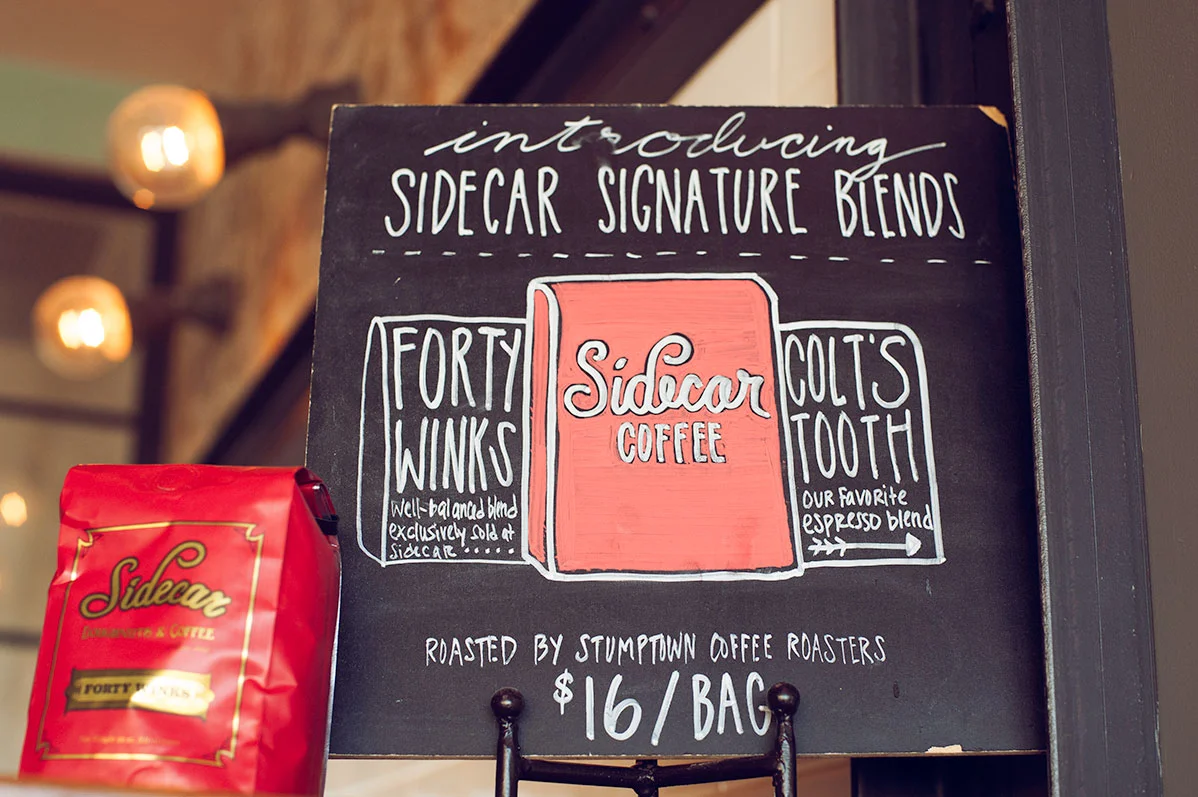 introducing
SIDECAR SIGNATURE BLENDS
FORTY
WINKS
Well-balanced blend
exclusively sold at
sidecar
Sidecar
COFFEE
COLT'S
TOOTH
OUR FAVORITE
espresso blend
ROASTED BY STUMPTOWN COFFEE ROASTERS
$16/BAG
Sidecar
DOUGHNUTS & COFFEE
FORTY WINKS